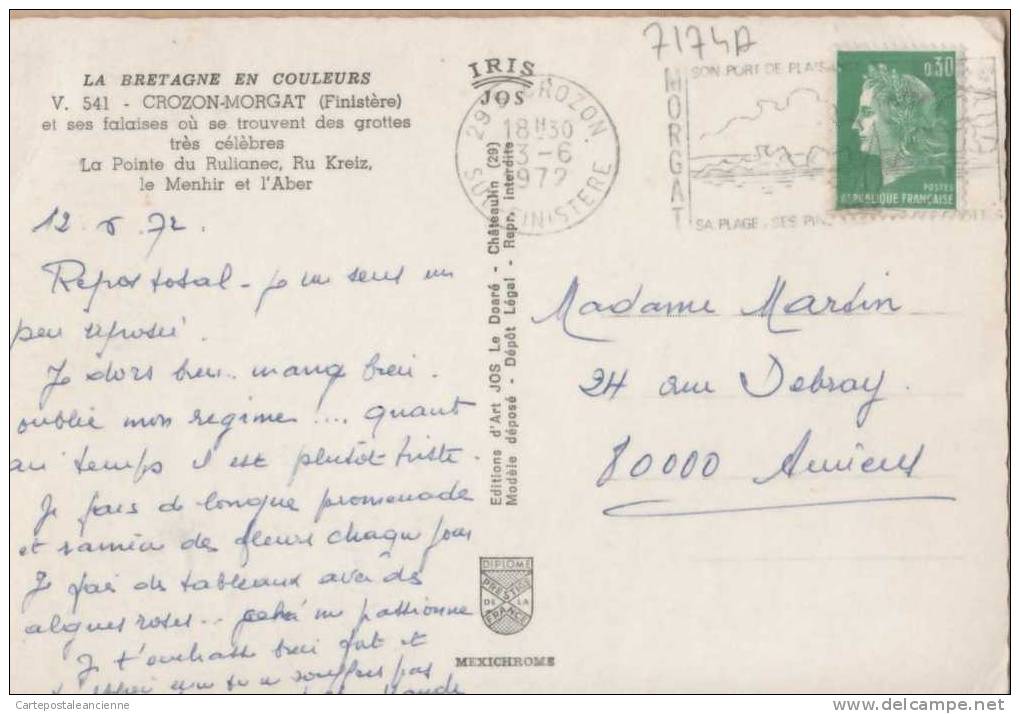 7174A
LA BRETAGNE EN COULEURS
V. 541 - CROZON-MORGAT (Finistère)
et ses falaises où se trouvent des grottes
très célèbres
La Pointe du Rulianec, Ru Kreiz,
le Menhir et l'Aber
12.6.72.
Repos total - je me sens un
peu reposée.
Je dors bien - mange bien -
oublie mon regime .... quant
au temps il est plutôt triste.
Je fais de longue promenade
et ramène des fleurs chaque jour
Je fais des tableaux avec des
algues roses... me passionne
Je t'embrasse bien fort et
t'espère que tu ne souffres pas
IRIS
JOS
29 CROZON
18H30
13-6
1972
SUD FINISTERE
MORGAT
SON PORT DE PLAISA
SA PLAGE, SES PIN
0,30
POSTES
REPUBLIQUE FRANÇAISE
Editions d'Art JOS Le Doaré - Châteaulin (29)
Modèle déposé - Dépôt Légal - Repr. interdite
Madame Martin
24 rue Debray.
80000 Amiens
DIPLOME
PRESTIGE
DE LA
FRANCE
MEXICHROME
Cartepostaleancienne
www.delcampe.net